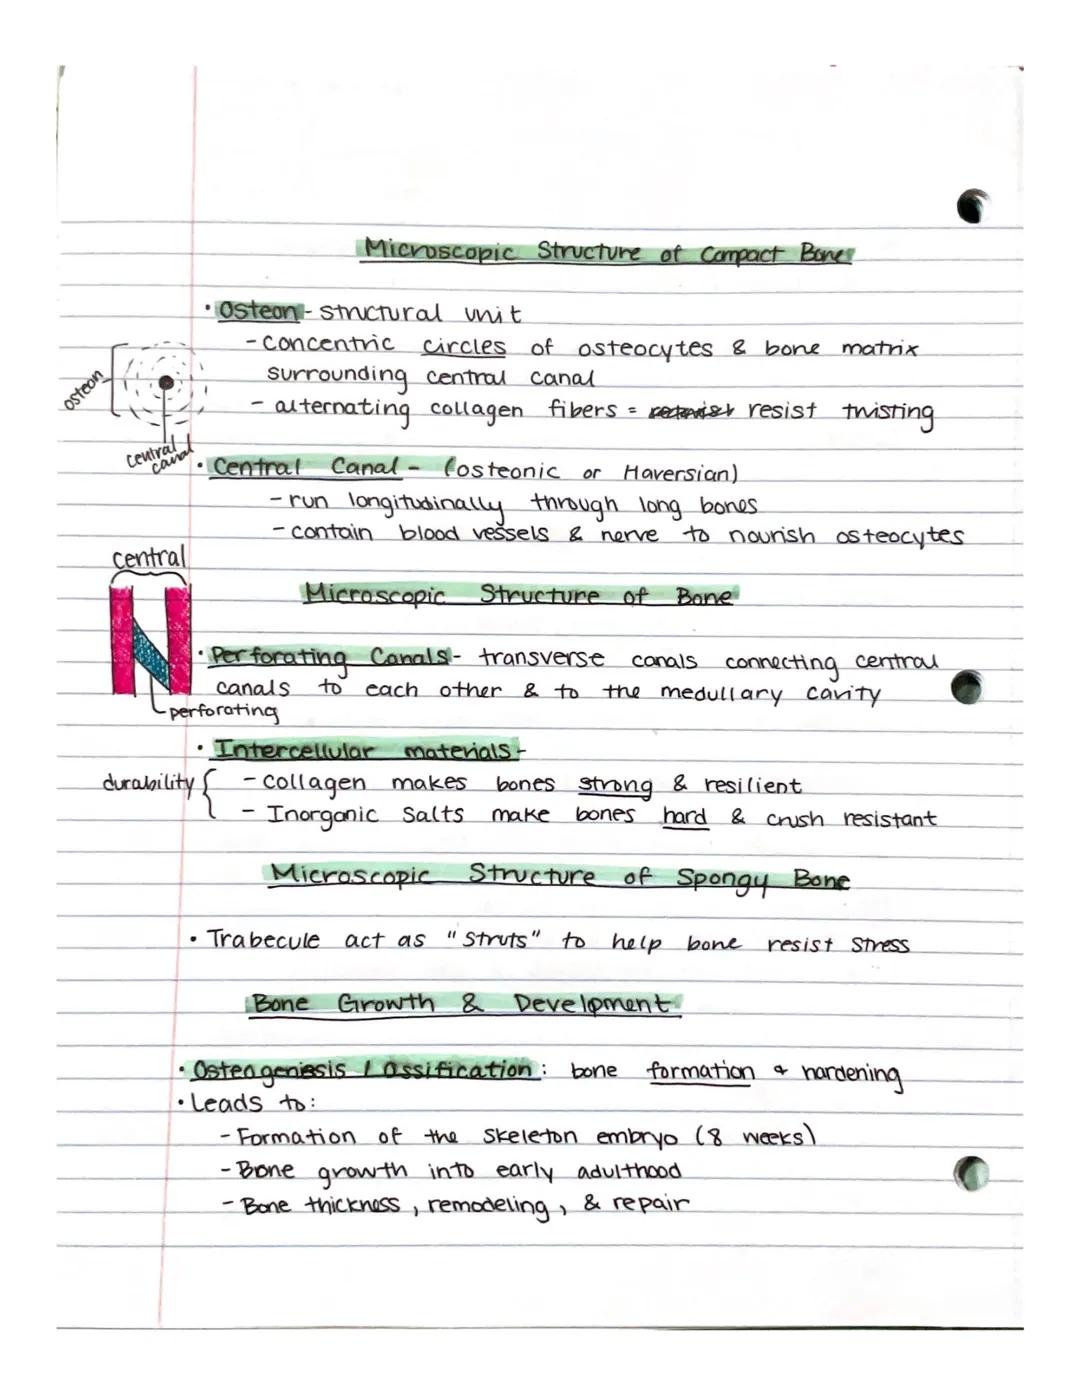 Microscopic Structure of Compact Bones
• Osteon - structural unit
- concentric circles of osteocytes & bone matrix
surrounding central canal
- alternating collagen fibers = resist twisting
osteon
central
canal
• Central Canal - (osteonic or Haversian)
- run longitudinally through long bones
- contain blood vessels & nerve to nourish osteocytes
central
Microscopic Structure of Bone
• Perforating Canals - transverse canals connecting central
canals to each other & to the medullary cavity
perforating
• Intercellular materials -
durability { - collagen makes bones strong & resilient
- Inorganic Salts make bones hard & crush resistant
Microscopic Structure of Spongy Bone
• Trabecule act as "struts" to help bone resist stress
Bone Growth & Development
• Osteogenisis / Ossification : bone formation & hardening
• Leads to:
- Formation of the Skeleton embryo (8 weeks)
- Bone growth into early adulthood
- Bone thickness, remodeling, & repair